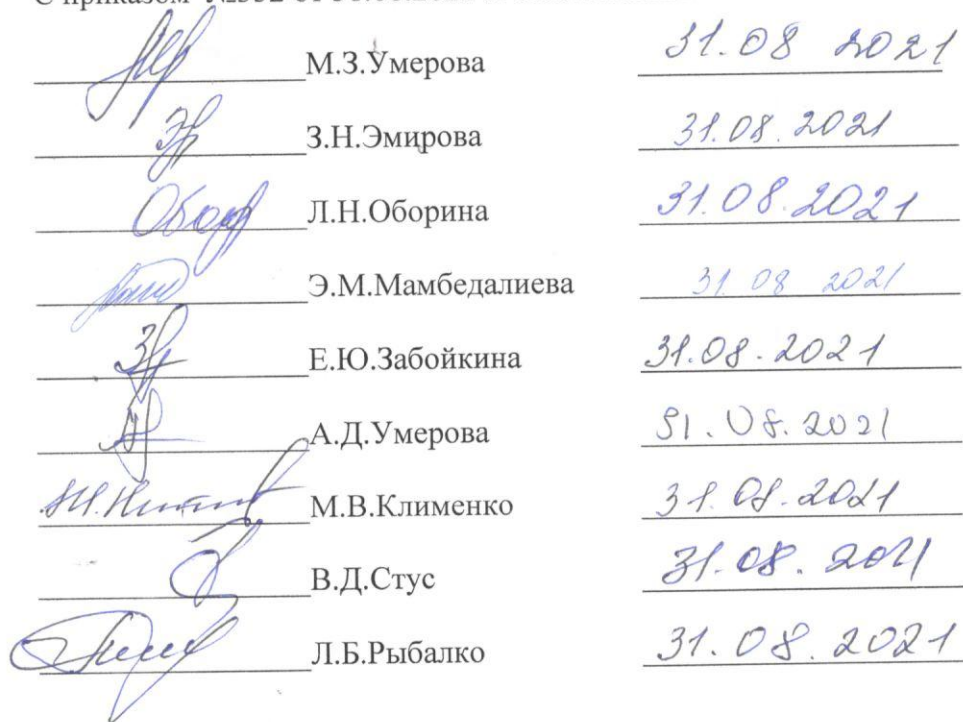 М.З.Умерова 31.08 2021
З.Н.Эмирова 31.08.2021
Л.Н.Оборина 31.08.2021
Э.М.Мамбедалиева 31.08 2021
Е.Ю.Забойкина 31.08.2021
А.Д.Умерова 31.08.2021
М.В.Клименко 31.08.2021
В.Д.Стус 31.08.2021
Л.Б.Рыбалко 31.08.2021